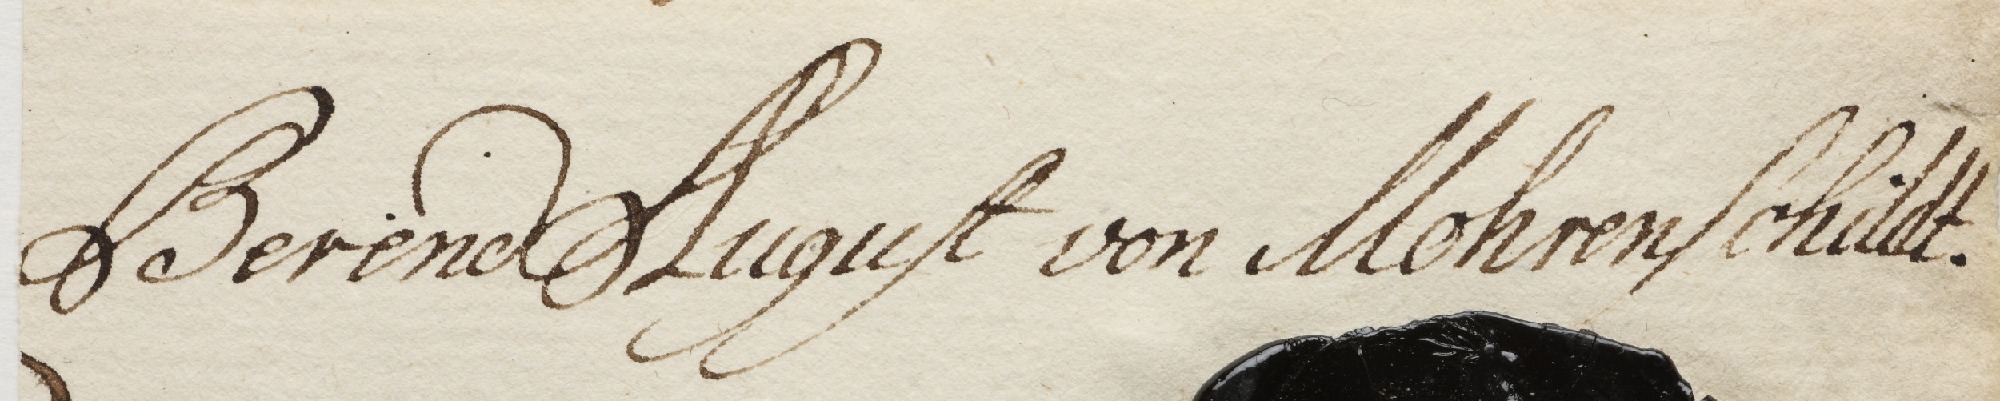 Berend August von Mohrenschildt.